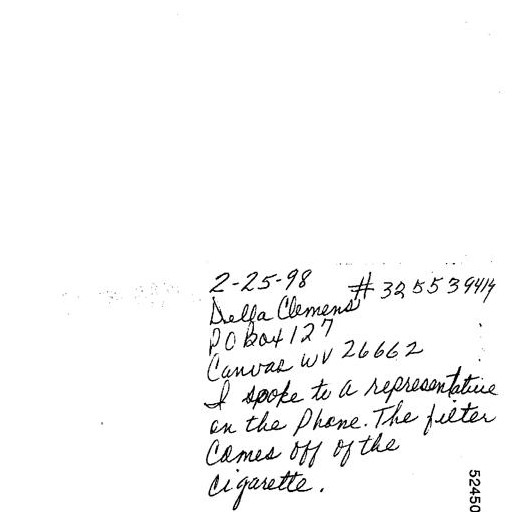 2-25-98 # 325539414
Della Clemens
PO Box 127
Canvas WV 26662
I spoke to a representative
on the Phone. The filter
Comes off of the
Cigarette.
52450